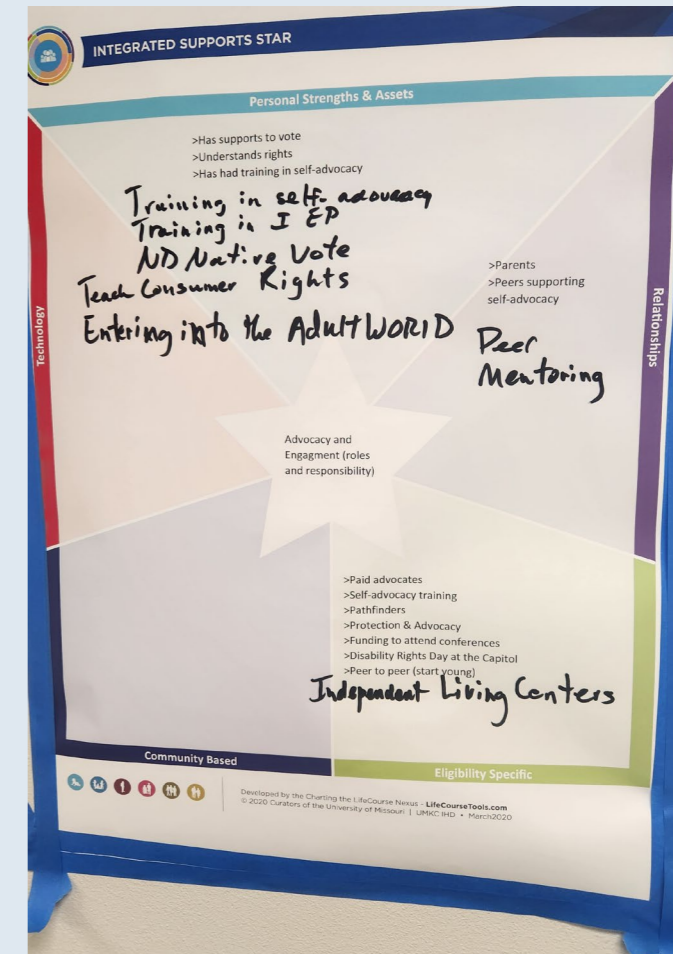 INTEGRATED SUPPORTS STAR
Personal Strengths & Assets
>Has supports to vote
>Understands rights
>Has had training in self-advocacy
Training in self-advocacy
Training in IEP
ND Native Vote
Teach Consumer Rights
Entering into the Adult WORlD
Technology
>Parents
>Peers supporting
self-advocacy
Peer
Mentoring
Relationships
Advocacy and
Engagment (roles
and responsibility)
>Paid advocates
>Self-advocacy training
>Pathfinders
>Protection & Advocacy
>Funding to attend conferences
>Disability Rights Day at the Capitol
>Peer to peer (start young)
Independent Living Centers
Community Based
Eligibility Specific
Developed by the Charting the LifeCourse Nexus - LifeCourseTools.com
© 2020 Curators of the University of Missouri | UMKC IHD • March2020